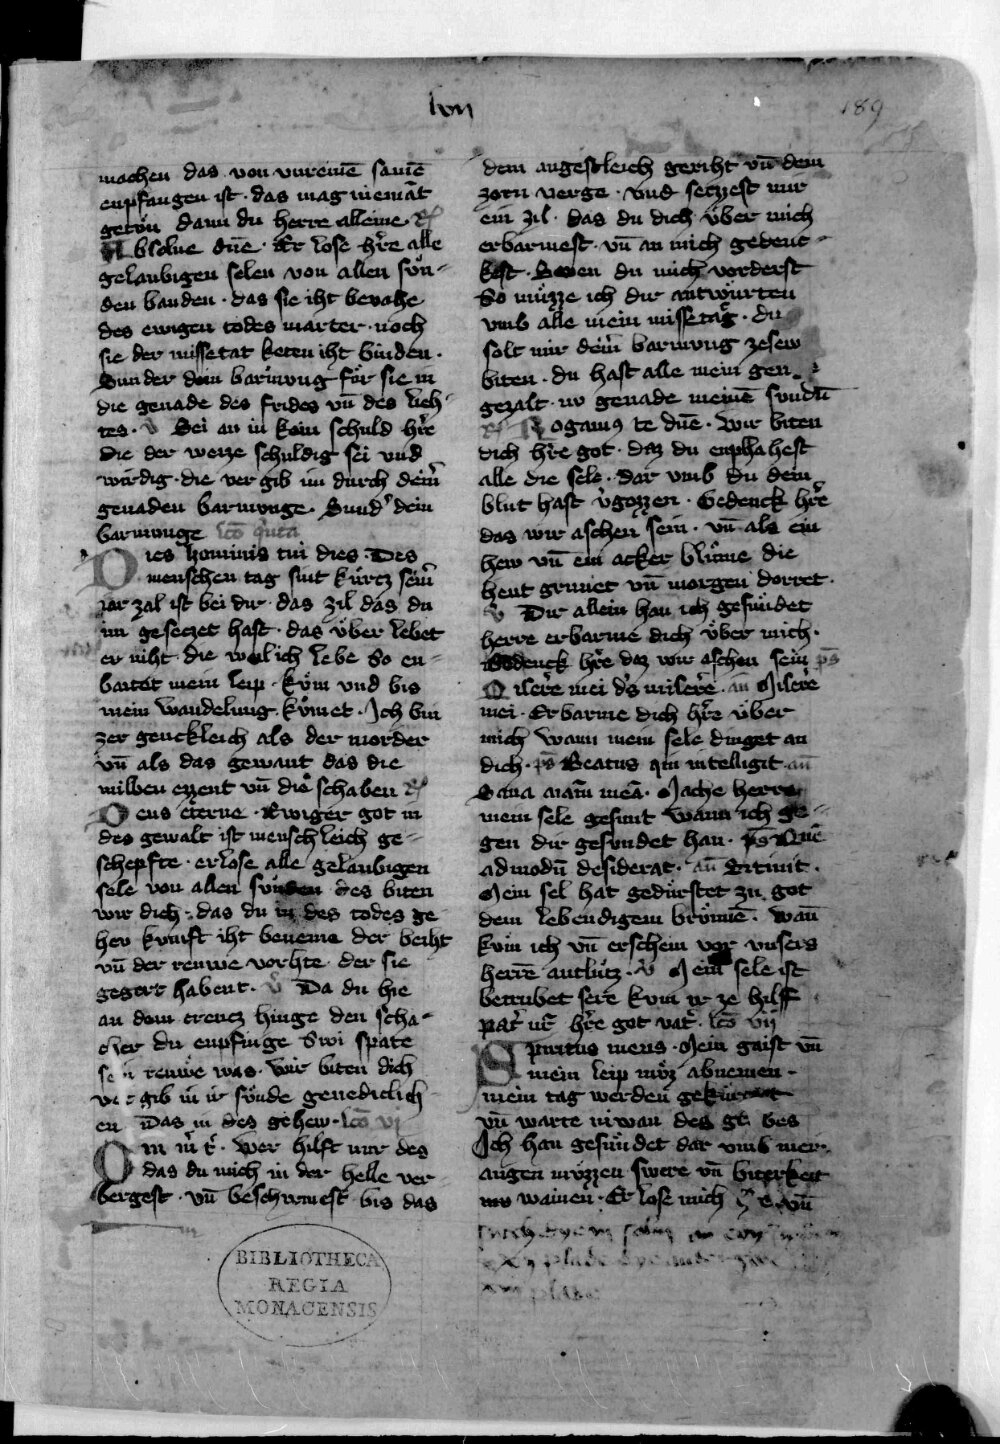 lvii
189
machen das von vnreinē samē
enpfangen ist · das mag niemāt
getůn dann du herre alleine · R̄
Absolue dn̄e · Er lose hr̄e alle
gelaubigen selen von allen sůn-
den banden · das sie iht bevahe
des ewigen todes marter · noch
sie der missetat keten iht binden ·
Sunder dein barmung fůr sie in
die genade des frides vn̄ des lieh-
tes · v̊ Sei an in kein schuld hr̄e
die der weize schuldig sei vnd
wirdig · die vergib im durch dein̄
genaden barmunge · Sund' dein
barmunge lc̄o q̄nta
Dies hominis tui dies · Des
menschen tag sint kůrtz sein̄
iar zal ist bei dir · das zil das du
im gesetzet hast · das ůber lebet
er niht · die weil ich lebe So en-
baitet mein leip · kům vnd bis
mein wandelung kůmet · Ich bin
zer genckleich als der morder
vn̄ als das gewant das die
milben ezzent vn̄ die schaben R̄
Deus eterne · Ewiger got in
des gewalt ist menschleich ge-
schepfte · erlose alle gelaubigen
sele von allen sůnden des biten
wir dich · das du in des todes ge
her kvnft iht beneme der beiht
vn̄ der reuwe vorhte · der sie
gegert habent · v̊ Da du hie
an dem creucz hinge den scha-
cher du enpfinge Swi spate
sein reuwe was · wir biten dich
vergib in ir sůnde genediclich
en Das in des gehew · lc̄o vj
Qm m̄ t̄ · wer hilft mir des
das du mich in der helle ver-
bergest · vn̄ beschirmest bis das
dein angesleich geriht vn̄ dem
zorn verge · vnd setzest mir
ein zil · das du dich ůber mich
erbarmest · vn̄ an mich gedenc-
kest · Swen du mich vorderst
So můzze ich dir antwůrten
vmb alle mein missetat · du
solt mir dein̄ barmung zesew
biten · du hast alle mein gen
gezalt · nv genade meinē sundn̄
R̄ Rogamus te dn̄e · wir biten
dich hr̄e got · daz du enphahest
alle die sele · dar vmb du dein
blut hast v̓gozzen · Gedenck hr̄e
das wir aschen sein · vn̄ als ein
hew vn̄ ein acker blůme die
heut grunet vn̄ morgen dorret ·
v̊ Dir allein han ich gesůndet
herre erbarme dich ůber mich ·
Gedenck hr̄e daz wir aschen sein ps̄
Miser̄e mei d's miser̄e · an̄ Miser̄e
mei · Erbarme dich hr̄e ůber
mich wann mein sele dinget an
dich · ps̄ Beatus qui intelligit an̄
Sana aiam̄ meā · Mache herre
mein sele gesunt wann ich ge-
gen dir gesundet han · ps̄ Quē
ad modū desiderat · an̄ Sitiuit ·
Mein sel hat gedůrstet zu got
dem lebendigem brůnnē · wan̄
kům ich vn̄ erschein vor vnsers
herrē antlůtz · v̊ Mein sele ist
betrubet sere kvm ir ze hilff
pat̄ nr̄ hr̄e got vat̄ · lc̄o vij
Spiritus meus · Mein gaist vn̄
mein leip můz abnemen ·
mein tag werden gekůrczet
vn̄ warte niwan des grabes
Ich han gesůndet dar vmb mer
augen můzzen swere vn̄ biterkeit
wainen · Er lose mich hr̄e vn̄
BIBLIOTHECA
REGIA
MONACENSIS